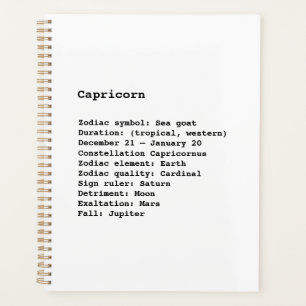 Capricorn
Zodiac symbol: Sea goat
Duration: (tropical, western)
December 21 — January 20
Constellation Capricornus
Zodiac element: Earth
Zodiac quality: Cardinal
Sign ruler: Saturn
Detriment: Moon
Exaltation: Mars
Fall: Jupiter